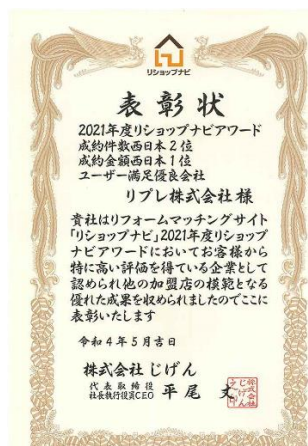 リショップナビ
表彰状
2021年度リショップナビアワード
成約件数西日本2位
成約金額西日本1位
ユーザー満足優良会社
リプレ株式会社 様
貴社はリフォームマッチングサイト
「リショップナビ」2021年度リショップ
ナビアワードにおいてお客様から
特に高い評価を得ている企業として
認められ他の加盟店の模範となる
優れた成果を収められましたのでここに
表彰いたします
令和4年5月吉日
株式会社じげん
代表取締役
社長執行役員CEO 平尾 丈